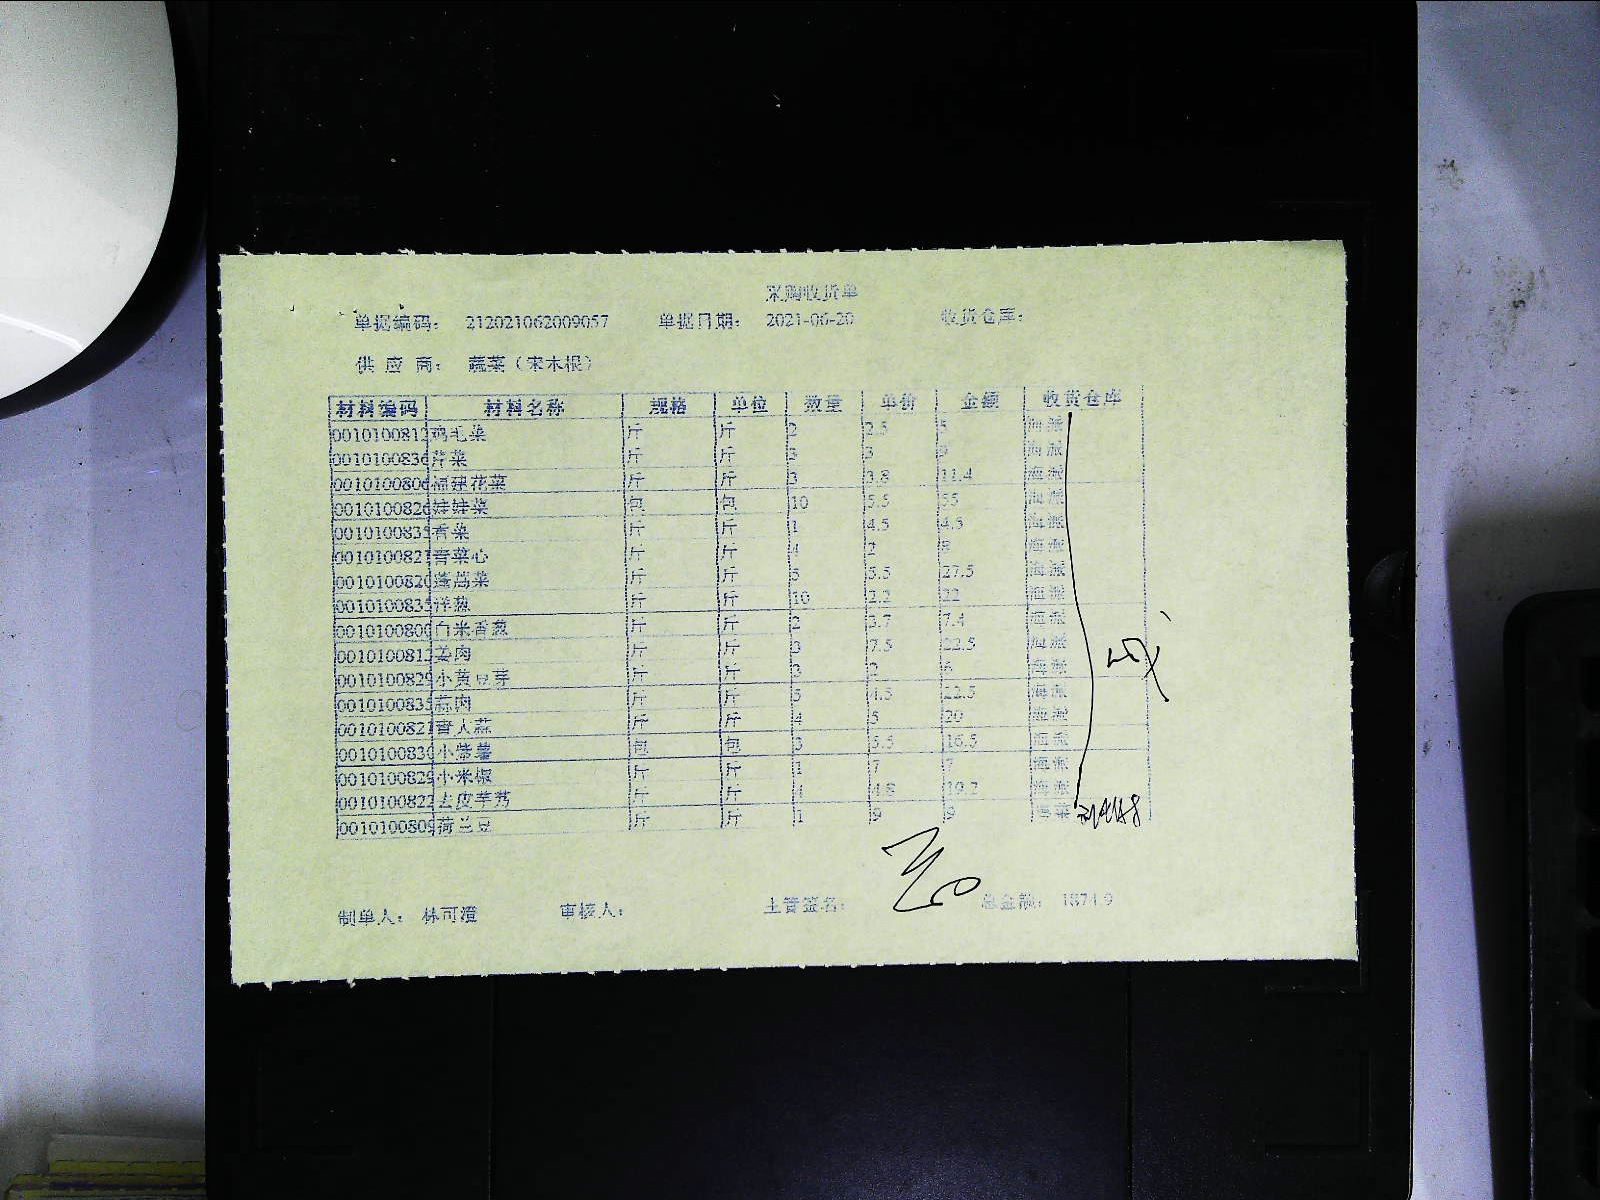 采购收货单
单据编码： 212021062009057 单据日期： 2021-06-20 收货仓库：
供 应 商： 蔬菜（宋木根）
材料编码 材料名称 规格 单位 数量 单价 金额 收货仓库
0010100812 鸡毛菜 斤 斤 2 2.5 5 海派
0010100836 芹菜 斤 斤 3 3 9 海派
0010100806 福建花菜 斤 斤 3 3.8 11.4 海派
0010100826 娃娃菜 包 包 10 5.5 55 海派
0010100835 香菜 斤 斤 1 4.5 4.5 海派
0010100821 青菜心 斤 斤 4 2 8 海派
0010100820 蓬蒿菜 斤 斤 5 5.5 27.5 海派
0010100835 洋葱 斤 斤 10 2.2 22 海派
0010100800 白米香葱 斤 斤 2 3.7 7.4 海派
0010100813 姜肉 斤 斤 3 7.5 22.5 海派
0010100829 小黄豆芽 斤 斤 3 2 6 海派
0010100835 蒜肉 斤 斤 5 4.5 22.5 海派
0010100821 青大蒜 斤 斤 4 5 20 海派
0010100830 小紫薯 包 包 3 5.5 16.5 海派
0010100829 小米椒 斤 斤 1 7 7 海派
0010100822 去皮芋艿 斤 斤 4 4.8 19.2 海派
0010100809 荷兰豆 斤 斤 1 9 9
制单人： 林可澄 审核人： 主管签名： 总金额： 1874.9